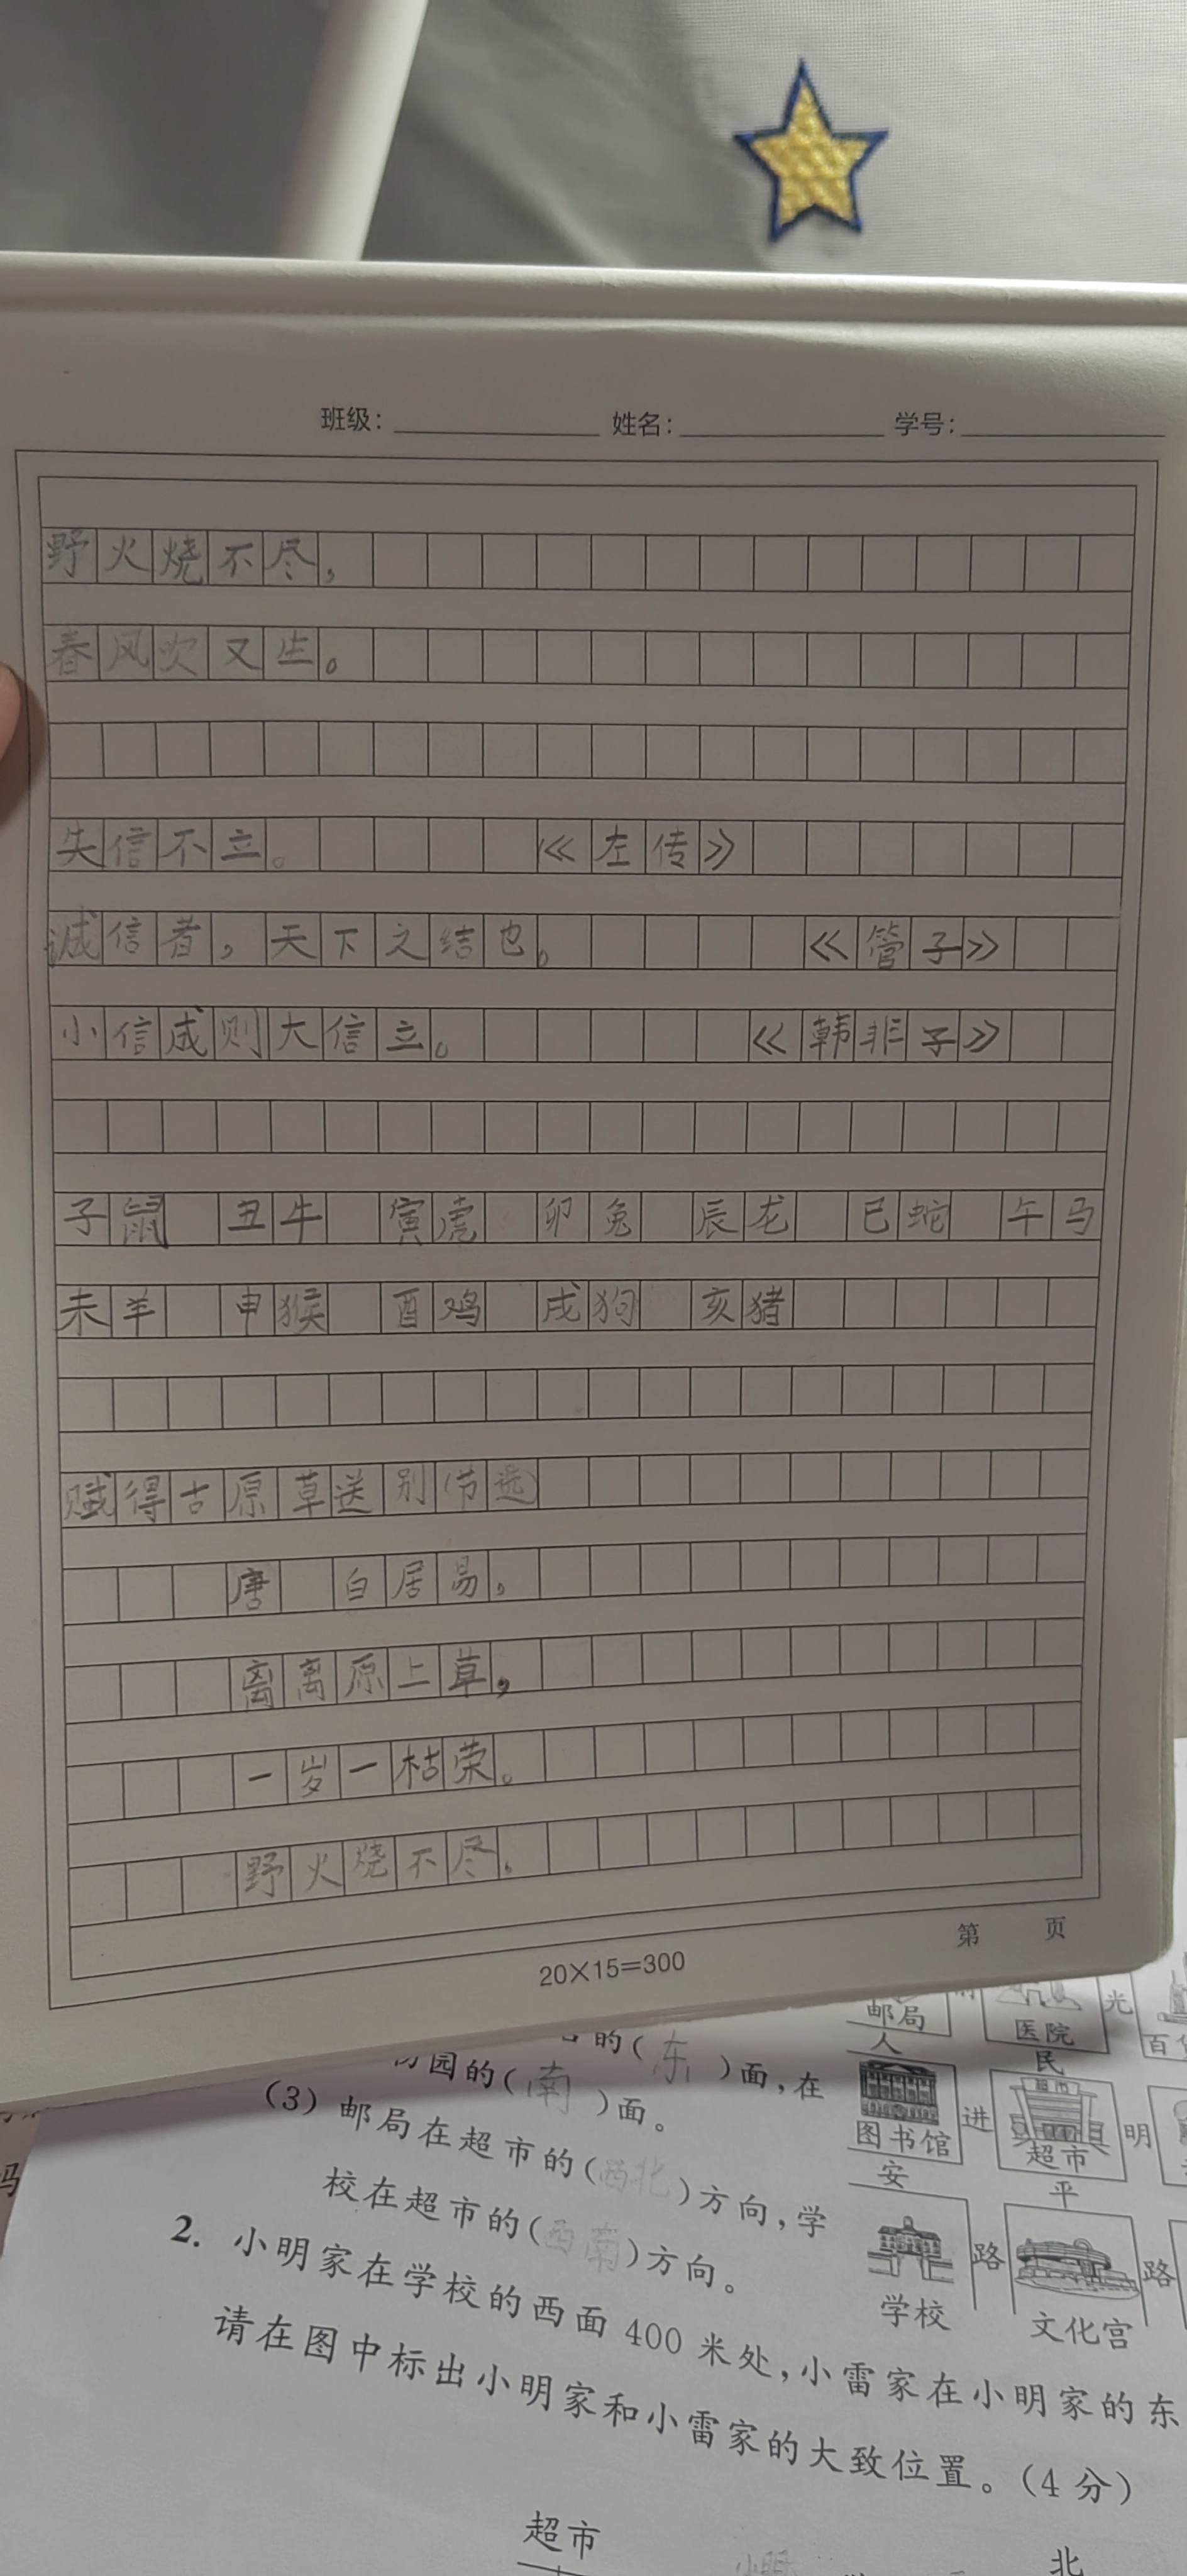 班级： 姓名： 学号：
野火烧不尽，
春风吹又生。
失信不立。 《左传》
诚信者，天下之结也。 《管子》
小信成则大信立。 《韩非子》
子鼠 丑牛 寅虎 卯兔 辰龙 巳蛇 午马
未羊 申猴 酉鸡 戌狗 亥猪
赋得古原草送别(节选)
唐 白居易，
离离原上草，
一岁一枯荣。
野火烧不尽，
20×15=300
第 页
的(东)面，在
园的(南)面。
(3) 邮局在超市的(西北)方向，学
校在超市的(西南)方向。
2. 小明家在学校的西面 400 米处，小雷家在小明家的东
请在图中标出小明家和小雷家的大致位置。(4 分)
超市
北
邮局
医院
光
人
民
图书馆
进
超市
明
安
平
学校
路
文化宫
路